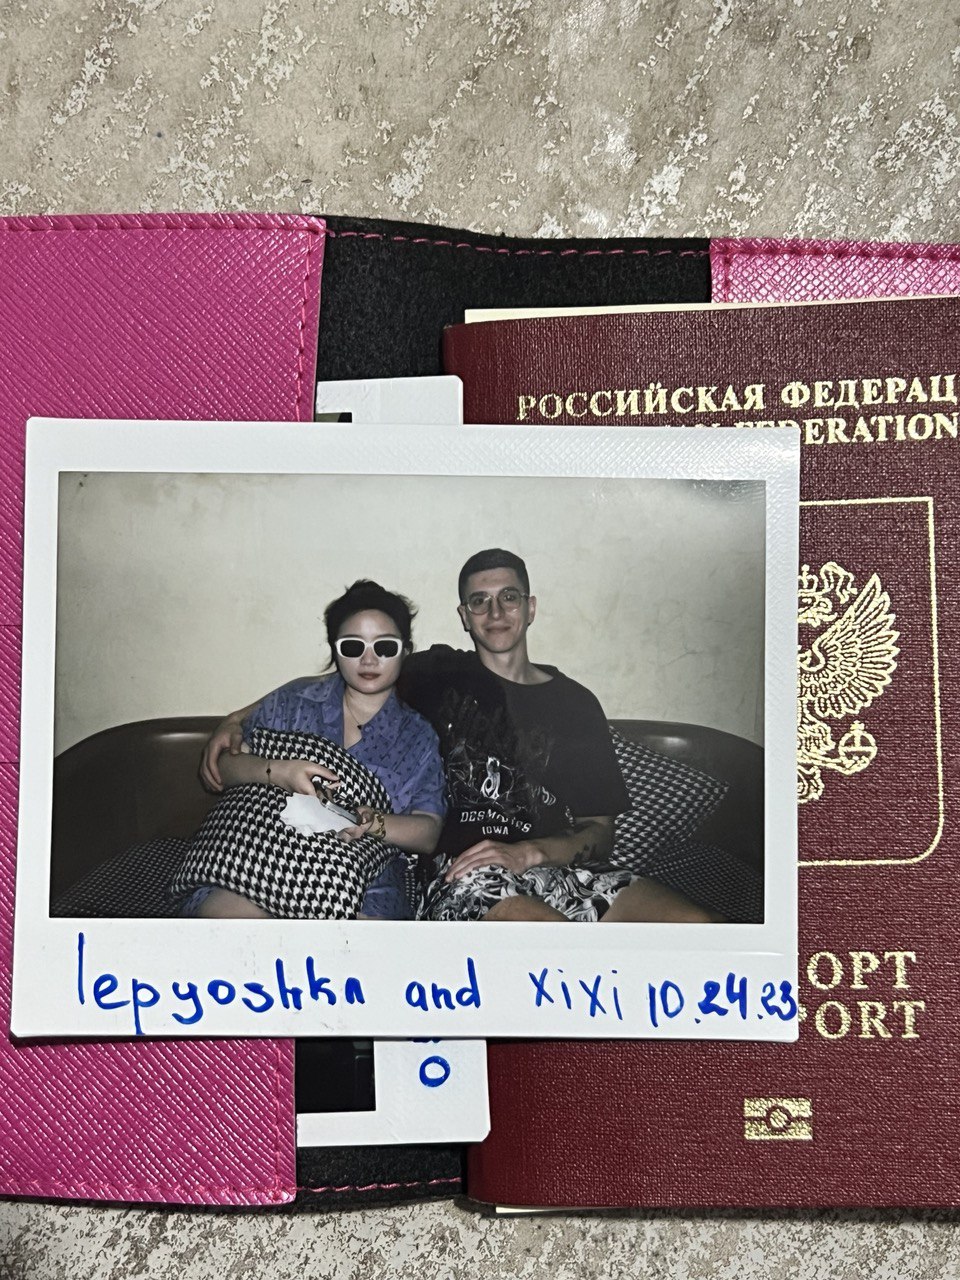 РОССИЙСКАЯ ФЕДЕРАЦ
FEDERATION
DES MOINES
IOWA
lepyoshka and xixi 10.24.23
ОРТ
PORT